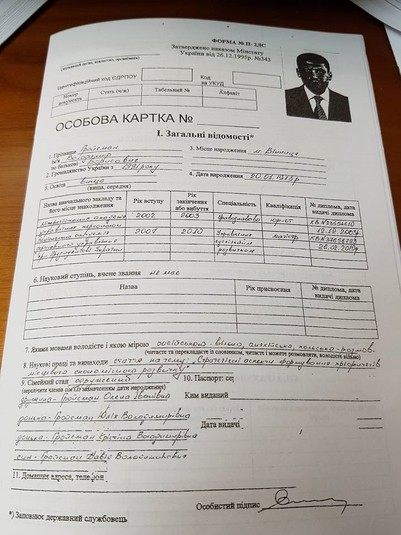 ФОРМА № П-2ДС
Затверджено наказом Мінстату
України від 26.12.1995р. №343
Ідентифікаційний код ЄДРПОУ
Код
за УКУД
Номер документа
Стать (ч/ж)
Табельний №
Алфавіт
ОСОБОВА КАРТКА №
І. Загальні відомості*
1. Прізвище Гройсман
Ім'я Володимир
по батькові Борисович
3. Місце народження м. Вінниця
2. Громадянство України з 1991 року
4. Дата народження 20.01.1978р.
5. Освіта вища
(вища, середня)
Назва навчального закладу та його місце знаходження
Рік вступу
Рік закінчення або вибуття
Спеціальність
Кваліфікація
№ диплома, дата видачі диплома
Міжрегіональна академія управління персоналом
2002
2003
Правознавство
юрист
Національна академія державного управління при Президентові України
2010
Управління суспільним розвитком
магістр
6. Науковий ступінь, вчене звання не має
Назва
Рік присвоєння
№ диплома, дата видачі
7. Якими мовами володієте і якою мірою російською - вільно, англійська, польська - розмов.
(читаєте та перекладаєте зі словником, читаєте і можете розмовляти, володієте вільно)
8. Наукові праці та винаходи стаття на тему: "Стратегічні аспекти формування пріоритетів
місцевого економічного розвитку"
9. Сімейний стан одружений
10. Паспорт: сер
(перелічити членів сім'ї із зазначенням дати народження)
дружина - Гройсман Олена
Ким виданий
донька - Гройсман Юлія Володимирівна
Дата видачі
донька - Гройсман Крістіна Володимирівна
син - Гройсман Давід Володимирович
11. Домашня адреса, телефон
Особистий підпис
*) Заповнює державний службовець